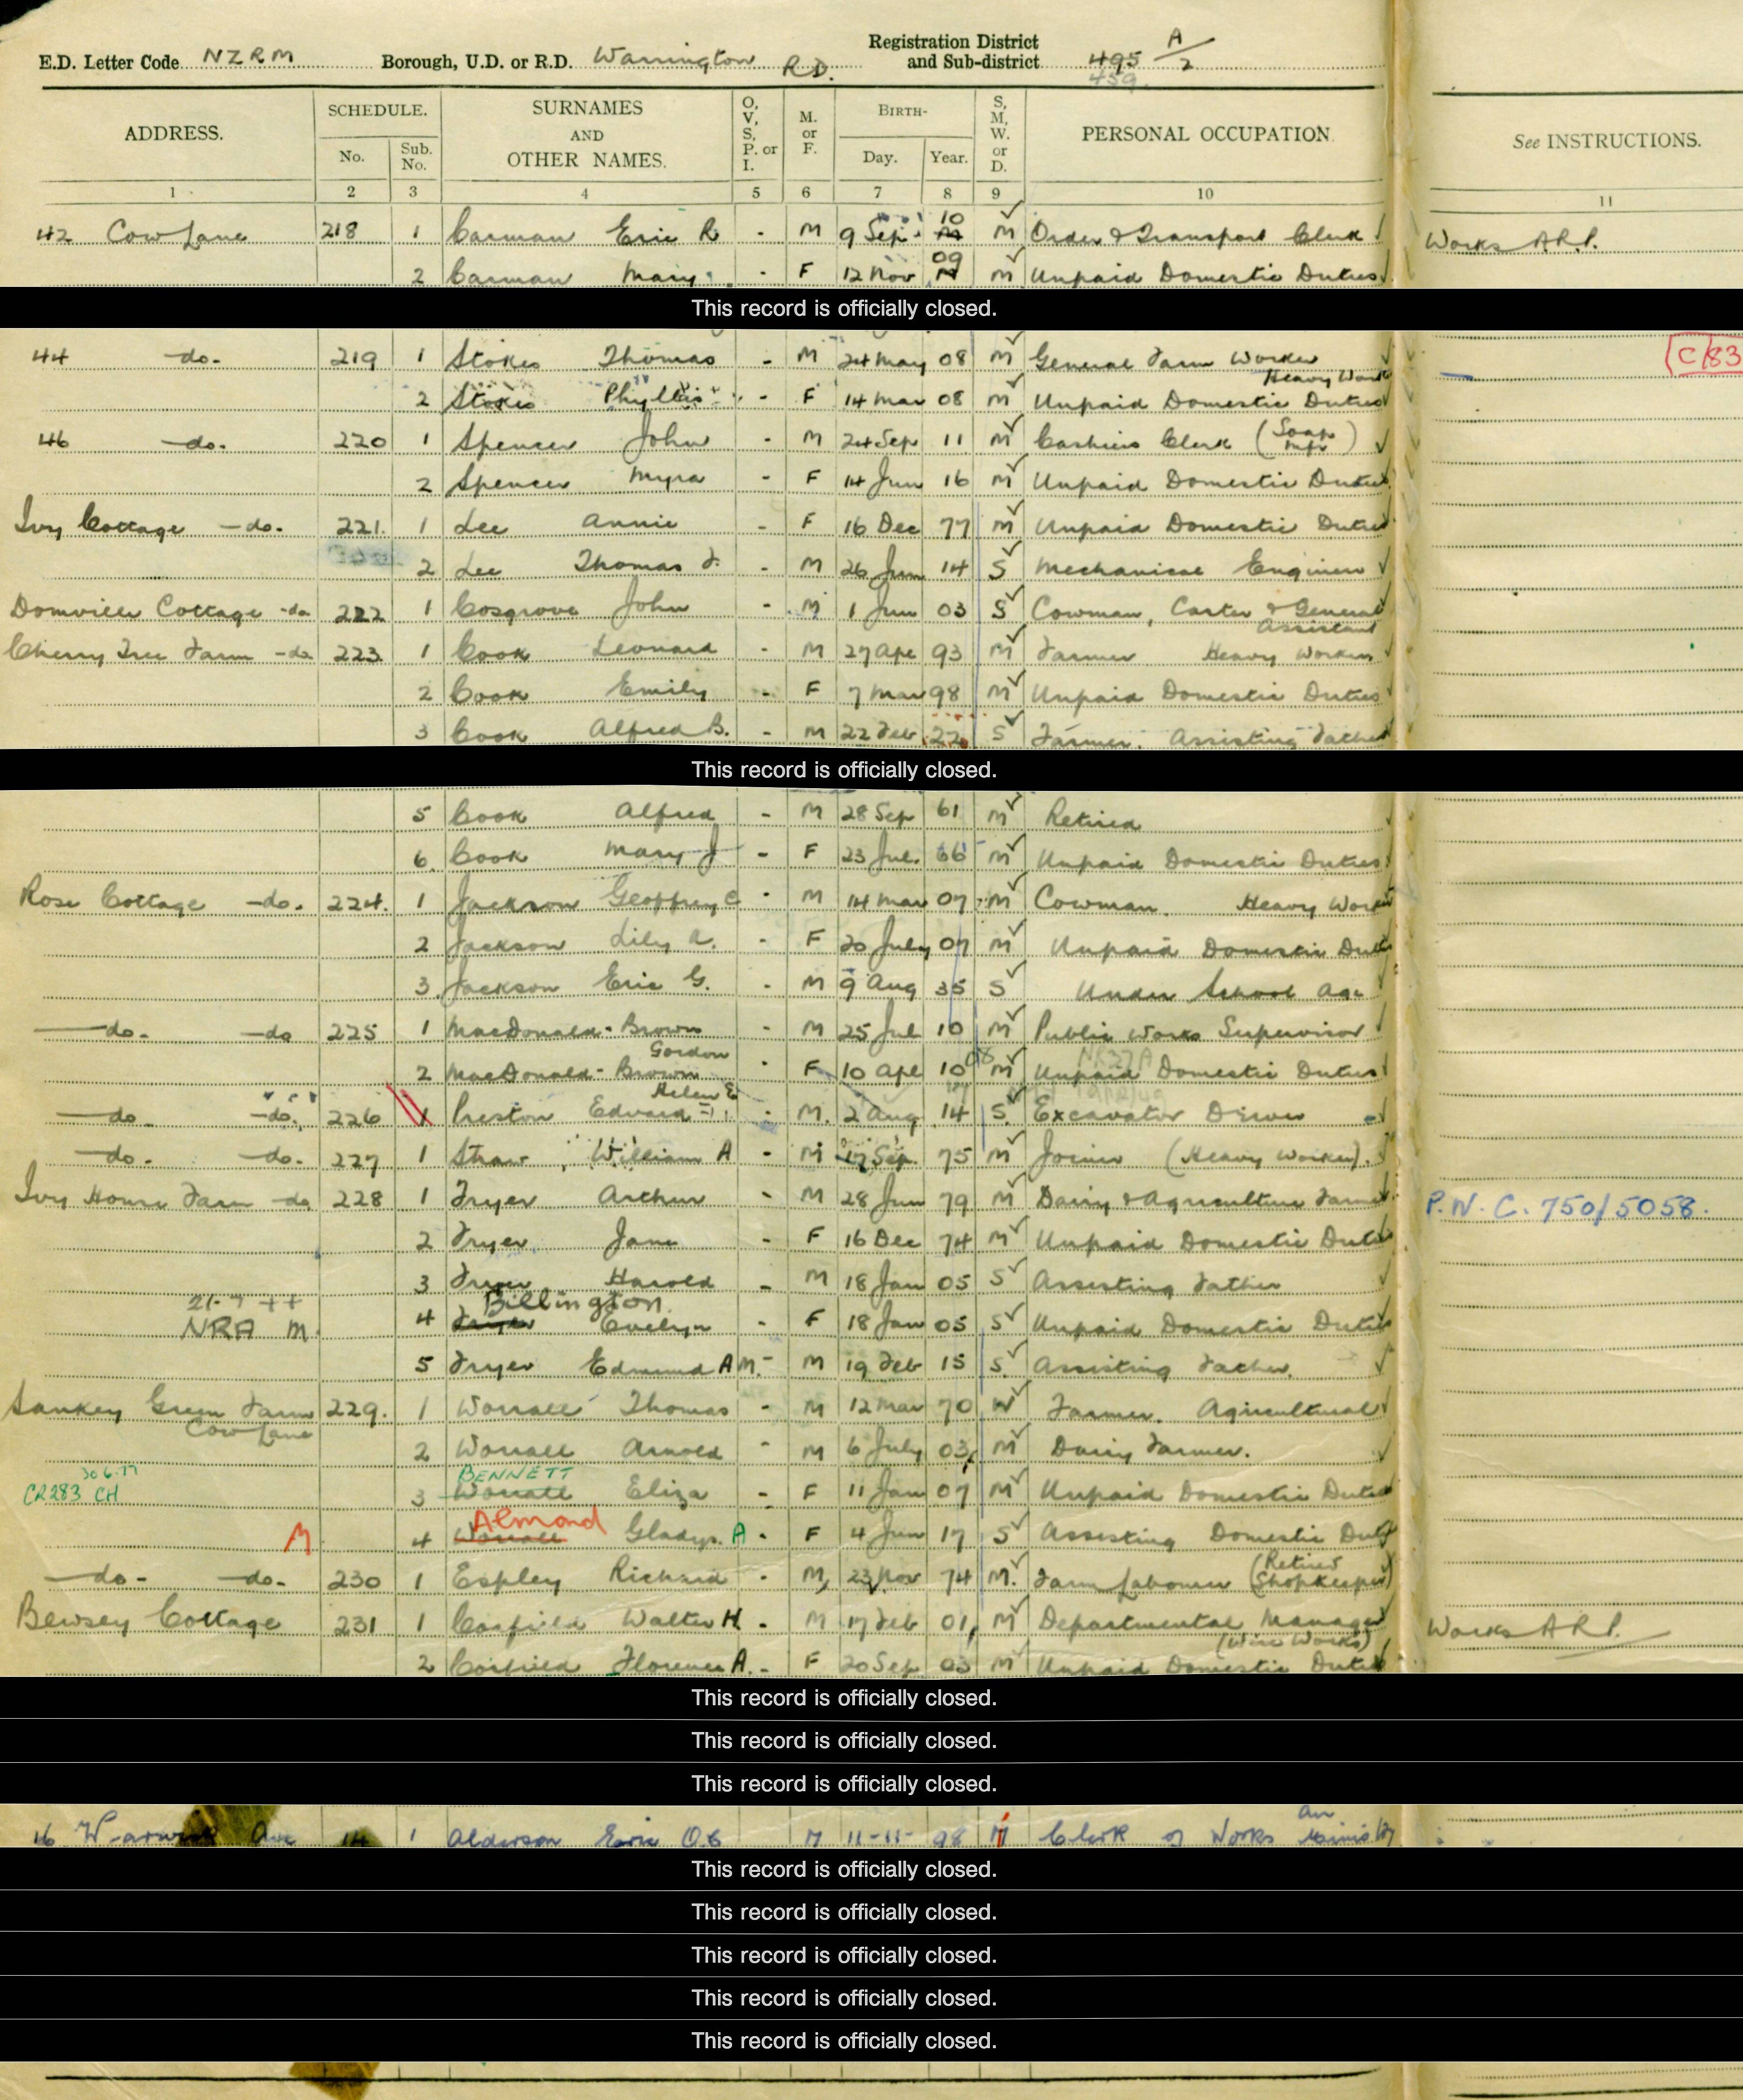 E.D. Letter Code NZRM Borough, U.D. or R.D. Warrington R.D. Registration District and Sub-district 495 A/2
459
ADDRESS. SCHEDULE. SURNAMES AND OTHER NAMES. O, V, S, P. or I. M. or F. BIRTH- S, M, W. or D. PERSONAL OCCUPATION. See INSTRUCTIONS.
No. Sub. No. Day. Year.
1 2 3 4 5 6 7 8 9 10 11
42 Cow Lane 218 1 Carman Eric R - M 9 Sep 10 M Order & Transport Clerk Works A.R.P.
2 Carman Mary - F 12 Nov 09 M Unpaid Domestic Duties
This record is officially closed.
44 -do- 219 1 Stokes Thomas - M 24 May 08 M General Farm Worker Heavy Work C/83
2 Stokes Phyllis - F 14 Mar 08 M Unpaid Domestic Duties
46 -do- 220 1 Spencer John - M 24 Sep 11 M Cashiers Clerk (Soap mfr)
2 Spencer Myra - F 14 Jun 16 M Unpaid Domestic Duties
Ivy Cottage -do- 221 1 Lee Annie - F 16 Dec 77 M Unpaid Domestic Duties
2 Lee Thomas F. - M 26 Jun 14 S Mechanical Engineer
Domville Cottage -do 222 1 Cosgrove John - M 1 Jun 03 S Cowman, Carter & General Assistant
Cherry Tree Farm -do 223 1 Cook Leonard - M 27 Apr 93 M Farmer Heavy Worker
2 Cook Emily - F 7 Mar 98 M Unpaid Domestic Duties
3 Cook Alfred B. - M 22 Feb 22 S Farmer. Assisting Father
This record is officially closed.
5 Cook Alfred - M 28 Sep 61 M Retired
6 Cook Mary J - F 23 Jul 66 M Unpaid Domestic Duties
Rose Cottage -do. 224. 1 Jackson Geoffrey C - M 14 Mar 07 M Cowman. Heavy Worker
2 Jackson Lily A. - F 20 July 07 M Unpaid Domestic Duties
3 Jackson Eric G. - M 9 Aug 35 S Under School Age
-do- -do 225 1 MacDonald-Brown Gordon - M 25 Jul 10 M Public Works Supervisor
2 MacDonald-Brown Helen E - F 10 Apl 10 08 M Unpaid Domestic Duties
-do. -do. 226 1 Preston Edward - M. 2 Aug 14 S Excavator Driver
-do. -do. 227 1 Straw William A - M 17 Sep 75 M Joiner (Heavy Worker).
Ivy House Farm -do 228 1 Fryer Arthur - M 28 Jun 79 M Dairy & Agriculture Farmer P.N.C. 750/5058.
2 Fryer Jane - F 16 Dec 74 M Unpaid Domestic Duties
3 Fryer Harold - M 18 Jan 05 S Assisting Father
21-7-44 NRA M. 4 Fryer Billington Evelyn - F 18 Jan 05 S Unpaid Domestic Duties
5 Fryer Edmund A M. - M 19 Feb 15 S. Assisting Father.
Sankey Green Farm Cow Lane 229. 1 Worrall Thomas - M 12 Mar 70 W Farmer. Agricultural
2 Worrall Arnold - M 6 July 03 M Dairy Farmer.
30.6.77 CR283 CH 3 Worrall BENNETT Eliza - F 11 Jan 07 M Unpaid Domestic Duties
M 4 Worrall Almond Gladys. A - F 4 Jun 17 S Assisting Domestic Duty
-do- -do- 230 1 Espley Richard - M 23 Nov 74 M. Farm Labourer (Retired Shopkeeper)
Bewsey Cottage 231 1 Corfield Walter H. - M 17 Feb 01 M Departmental Manager (Wire Works) Works A.R.P.
2 Corfield Florence A. - F 20 Sep 03 M Unpaid Domestic Duties
This record is officially closed.
This record is officially closed.
This record is officially closed.
16 Warwick Ave 14 1 Alderson Eric O.C M 11-11- 98 M Clerk of Works Air Ministry
This record is officially closed.
This record is officially closed.
This record is officially closed.
This record is officially closed.
This record is officially closed.